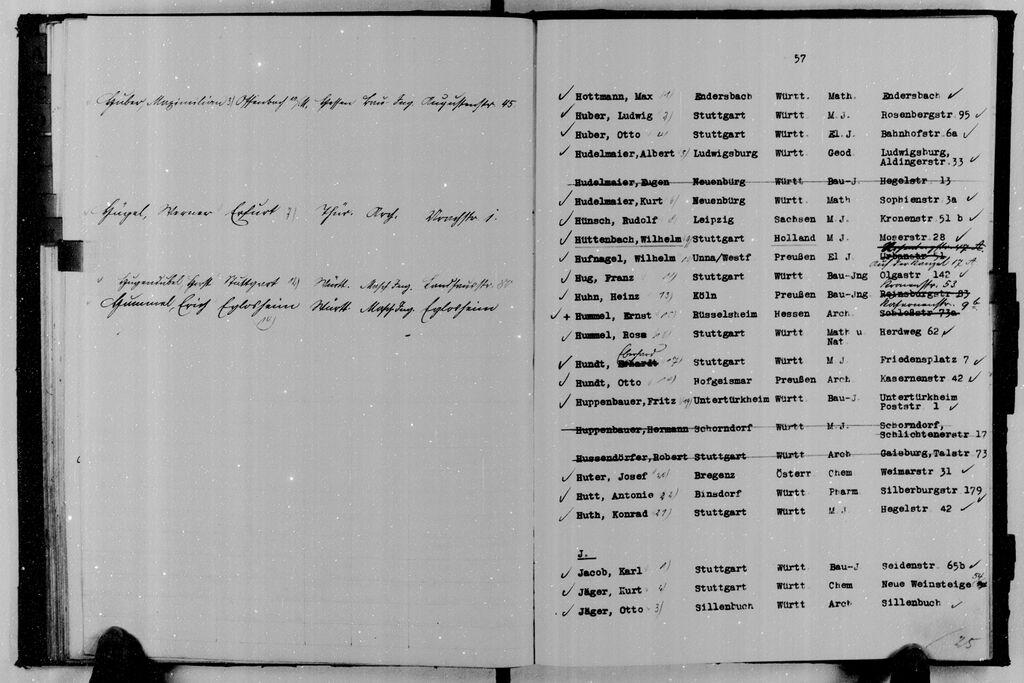 Huber, Maximilian 3) Offenbach a/M. Hessen Bau Ing. Augustenstr. 45
Hügel, Werner Erfurt 7) Thür. Arch. 1.
Hugendubel Horst Stuttgart Württ. Masch Ing. Landhausstr.
Hummel, Erich Eglosheim Württ. Masch Ing. Eglosheim
(14)
57
✓ Hottmann, Max 1) Endersbach Württ. Math. Endersbach ✓
✓ Huber, Ludwig 2) Stuttgart Württ M.J. Rosenbergstr. 95 ✓
✓ Huber, Otto 4) Stuttgart Württ El.J. Bahnhofstr. 6a ✓
✓ Hudelmaier, Albert 5) Ludwigsburg Württ Geod. Ludwigsburg,
Aldingerstr. 33 ✓
Hudelmaier, Eugen Neuenbürg Württ Bau-J. Hegelstr. 13
✓ Hudelmaier, Kurt 6) Neuenbürg Württ Math Sophienstr. 3a ✓
✓ Hünsch, Rudolf 8) Leipzig Sachsen M.J. Kronenstr. 51 b ✓
✓ Hüttenbach, Wilhelm 9) Stuttgart Holland M.J. Moserstr. 28 ✓
✓ Hufnagel, Wilhelm Unna/Westf Preußen El J. Urbanstr 71
Auf der Kanzel 17 A
✓ Hug, Franz 11) Stuttgart Württ Bau-Jng Olgastr 142 ✓
Kronenstr. 53
✓ Huhn, Heinz 13) Köln Preußen Bau-Jng. Reinsburgstr 83
Kasernenstr. 9b
✓ + Hummel, Ernst 15) Rüsselsheim Hessen Arch. Schloßstr 73a
✓ Hummel, Rosa 16) Stuttgart Württ Math u. Herdweg 62 ✓
Nat.
Eberhard
✓ Hundt, Erhardt 17) Stuttgart Württ M.J. Friedensplatz 7 ✓
✓ Hundt, Otto 18) Hofgeismar Preußen Arch Kasernenstr 42 ✓
✓ Huppenbauer, Fritz 19) Untertürkheim Württ. Bau-J. Untertürkheim
Poststr. 1 ✓
Huppenbauer, Hermann Schorndorf Württ M.J. Schorndorf,
Schlichtenerstr 17
Hussendörfer, Robert Stuttgart Württ Arch Gaisburg, Talstr 73
✓ Huter, Josef 20) Bregenz Österr Chem Weimarstr 31 ✓
✓ Hutt, Antonie 22) Binsdorf Württ. Pharm. Silberburgstr 179 ✓
✓ Huth, Konrad 21) Stuttgart Württ M.J Hegelstr. 42 ✓
J.
✓ Jacob, Karl 1) Stuttgart Württ. Bau-J Seidenstr. 65b ✓
✓ Jäger, Kurt 2) Stuttgart Württ. Chem Neue Weinsteige 54
✓ Jäger, Otto 3) Sillenbuch Württ Arch Sillenbuch ✓
25